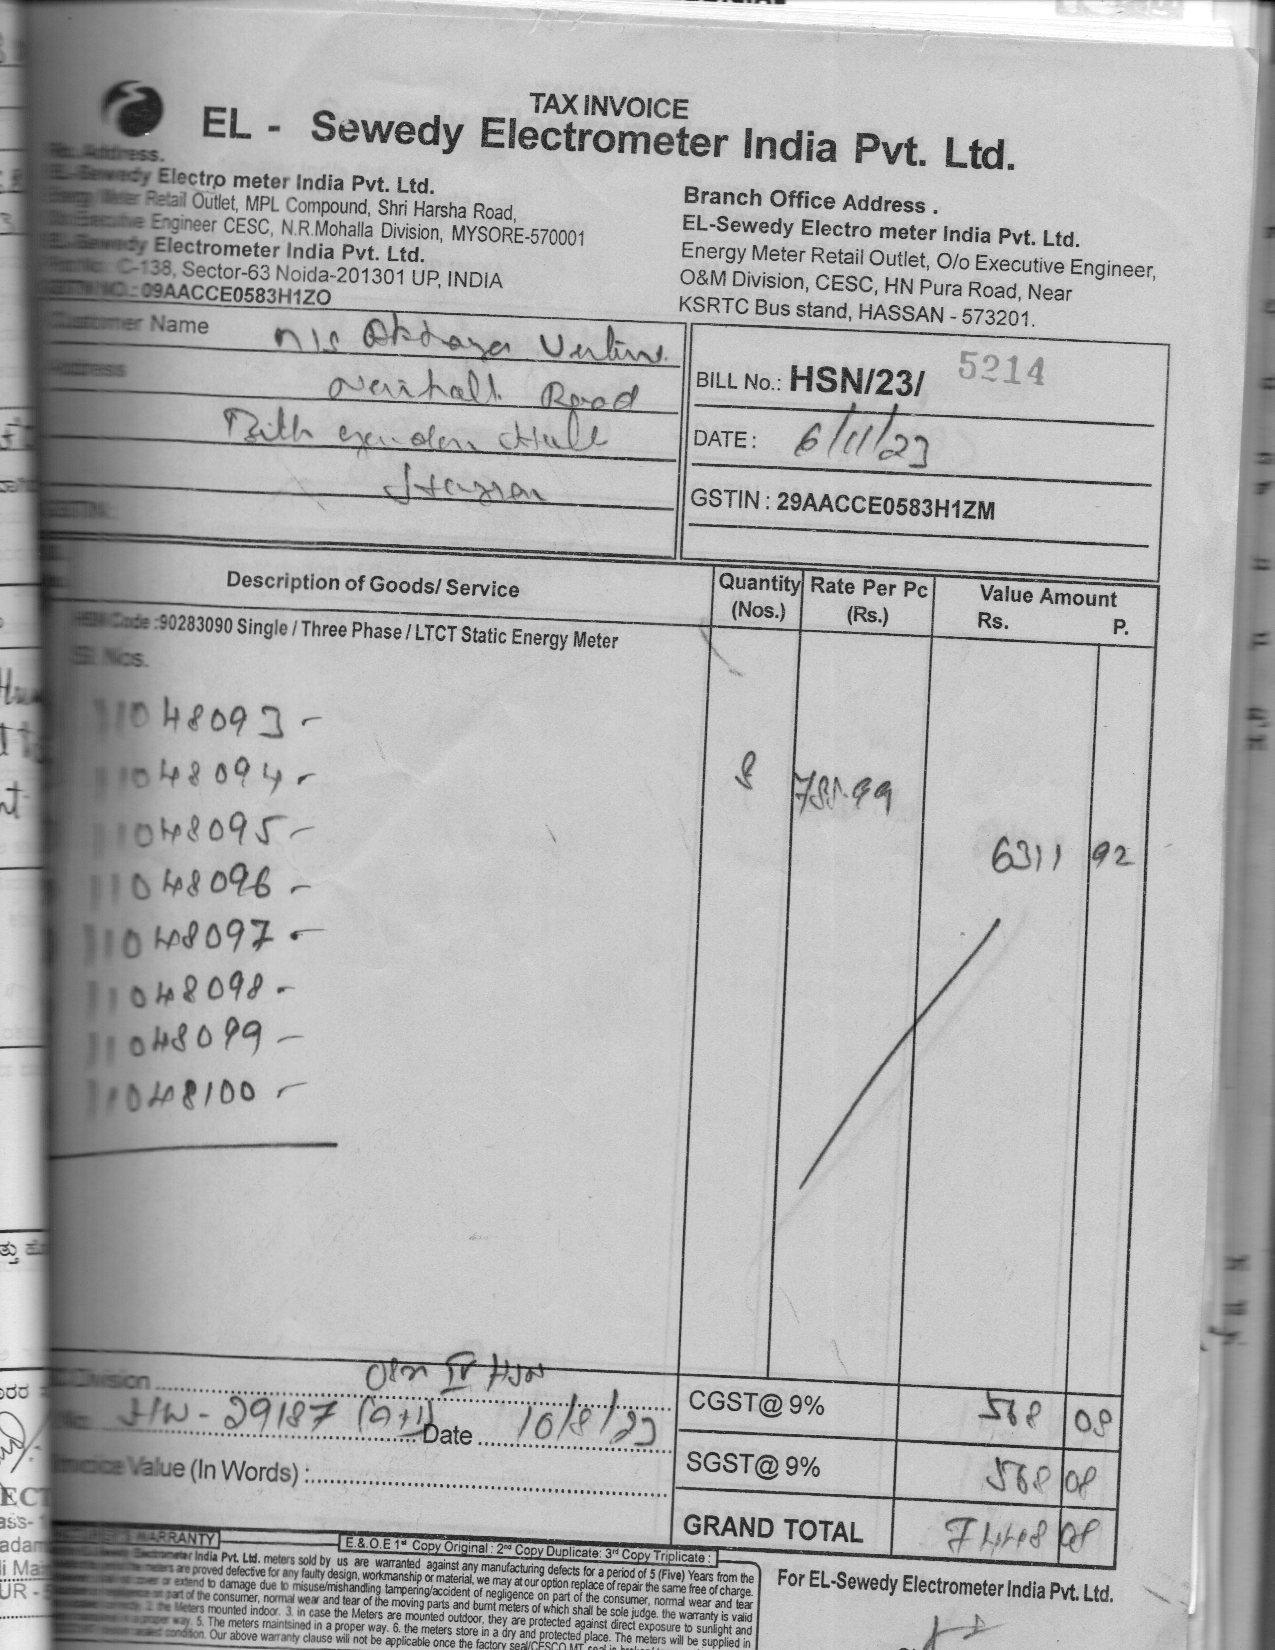 TAX INVOICE
EL - Sewedy Electrometer India Pvt. Ltd.
Address.
EL-Sewedy Electro meter India Pvt. Ltd.
Energy Meter Retail Outlet, MPL Compound, Shri Harsha Road,
Executive Engineer CESC, N.R.Mohalla Division, MYSORE-570001
EL-Sewedy Electrometer India Pvt. Ltd.
C-138, Sector-63 Noida-201301 UP, INDIA
GSTIN NO.: 09AACCE0583H1ZO
Branch Office Address .
EL-Sewedy Electro meter India Pvt. Ltd.
Energy Meter Retail Outlet, O/o Executive Engineer,
O&M Division, CESC, HN Pura Road, Near
KSRTC Bus stand, HASSAN - 573201.
Customer Name M/s
Address Road
GSTIN:
BILL No.: HSN/23/ 5214
DATE : 6/11/23
GSTIN : 29AACCE0583H1ZM
Description of Goods/ Service
Quantity (Nos.)
Rate Per Pc (Rs.)
Value Amount
Rs. P.
HSN Code :90283090 Single / Three Phase / LTCT Static Energy Meter
Sl. Nos.
11048093 -
11048094 -
11048095 -
11048096 -
11048097 -
11048098 -
11048099 -
11048100 -
8 788.99
6311 92
Division
29187 Date 10/8/23
Invoice Value (In Words) :
CGST@ 9% 568 08
SGST@ 9% 568 08
GRAND TOTAL 7448 08
WARRANTY
E.& O.E 1st Copy Original : 2nd Copy Duplicate: 3rd Copy Triplicate :
Electrometer India Pvt. Ltd. meters sold by us are warranted against any manufacturing defects for a period of 5 (Five) Years from the
are proved defective for any faulty design, workmanship or material, we may at our option replace of repair the same free of charge.
or extend to damage due to misuse/mishandling tampering/accident of negligence on part of the consumer, normal wear and tear
part of the consumer, normal wear and tear of the moving parts and burnt meters of which shall be sole judge. the warranty is valid
2. the Meters mounted indoor. 3. in case the Meters are mounted outdoor, they are protected against direct exposure to sunlight and
5. The meters maintsined in a proper way. 6. the meters store in a dry and protected place. The meters will be supplied in
condition. Our above warranty clause will not be applicable once the factory seal/CESCO MT seal is
For EL-Sewedy Electrometer India Pvt. Ltd.